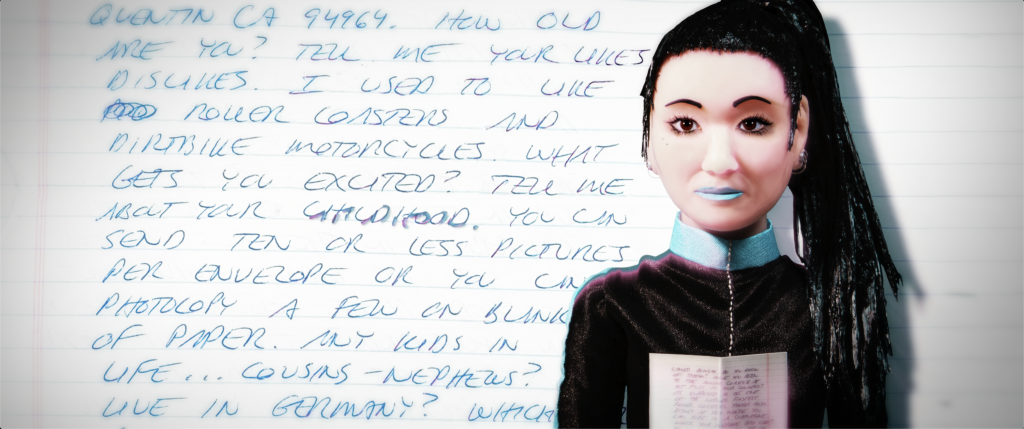 QUENTIN CA 94964. HOW OLD
ARE YOU? TELL ME YOUR LIKES
DISLIKES. I USED TO LIKE
ROLLER COASTERS AND
DIRTBIKE MOTORCYCLES. WHAT
GETS YOU EXCITED? TELL ME
ABOUT YOUR CHILDHOOD. YOU CAN
SEND TEN OR LESS PICTURES
PER ENVELOPE OR YOU CAN
PHOTOCOPY A FEW ON BLANK
OF PAPER. ANY KIDS IN
LIFE... COUSINS-NEPHEWS?
LIVE IN GERMANY? WHICH